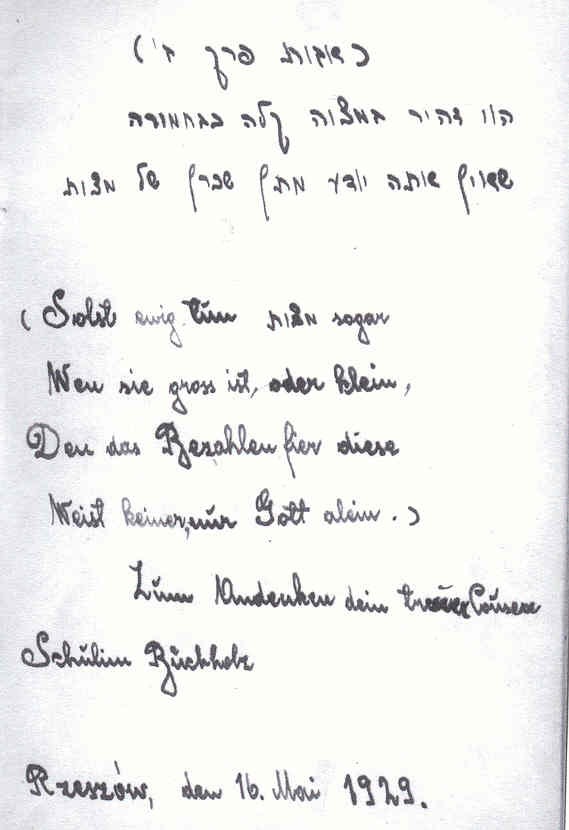 (אבות פרק ב')
הוי זהיר במצוה קלה כבחמורה
שאין אתה יודע מתן שכרן של מצות
(Solst ewig tun מצות sogar
Wen sie gross ist, oder klein,
Den das Bezahlen fier diese
Weist keiner, nur Gott alein.)
Zum Andenken dein treuer Cousene
Schulim Buchholz
Rzeszów, den 16. Mai 1929.